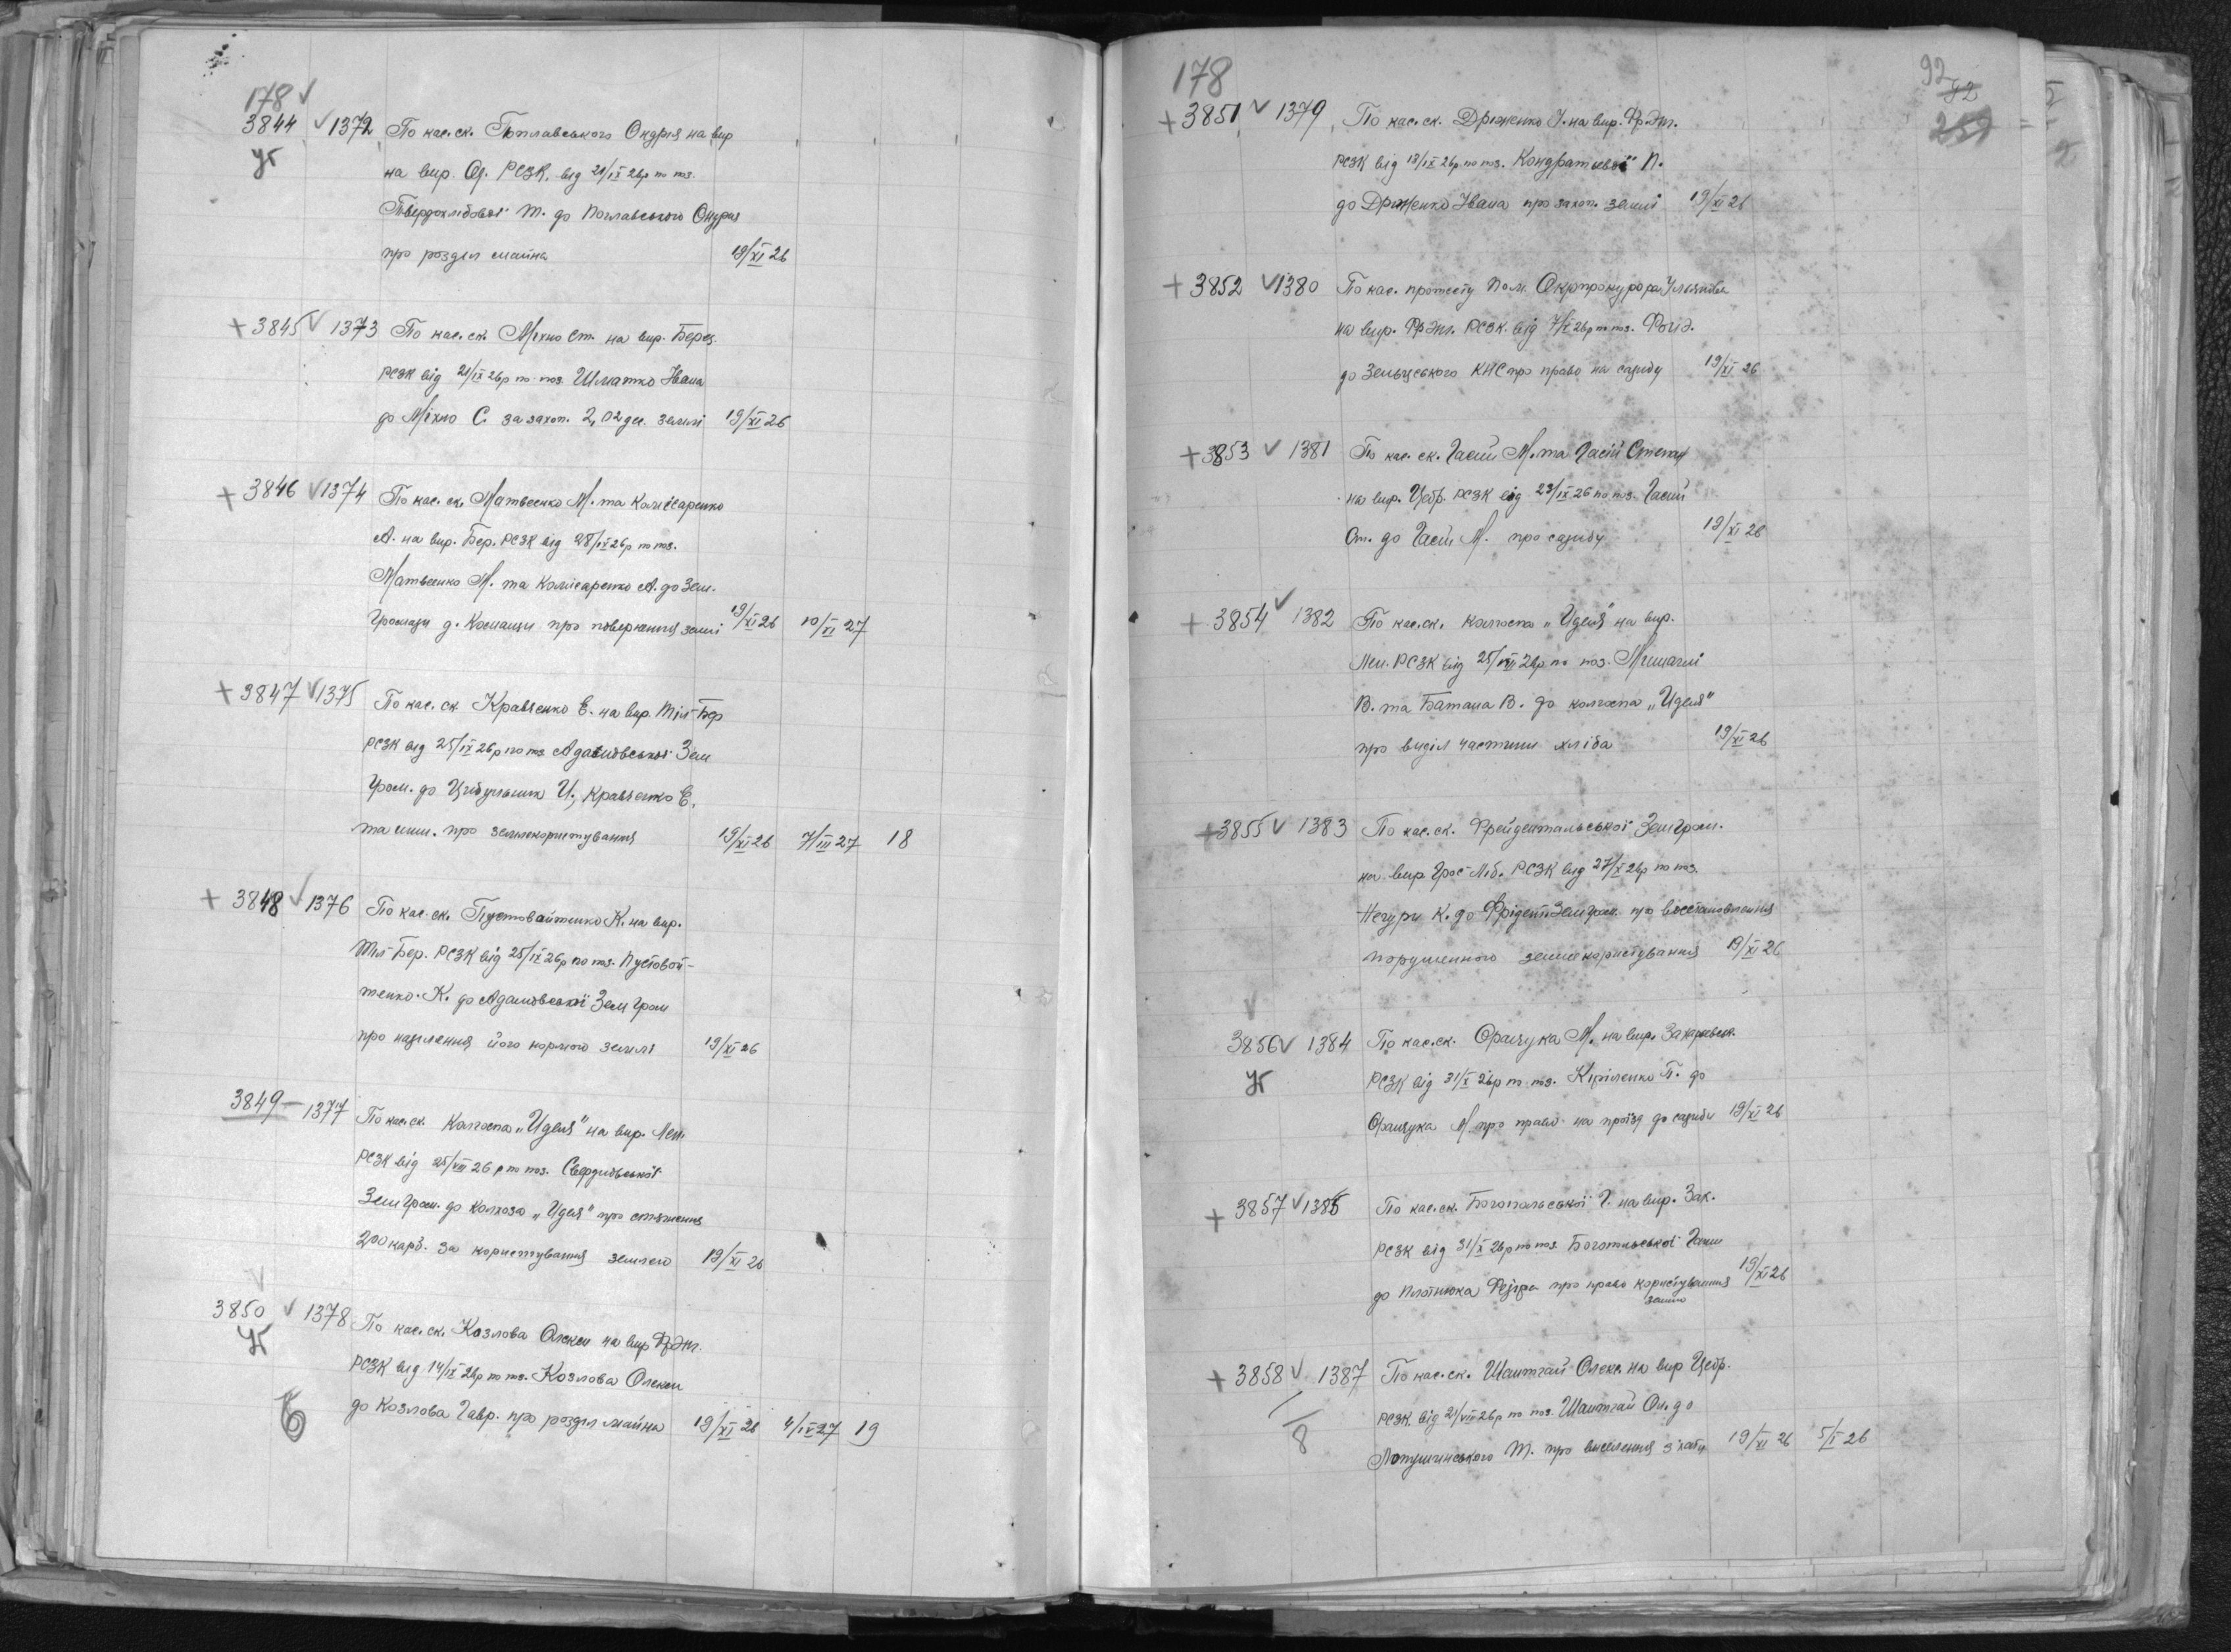 178 ✓
3844 ✓ 1372 По кас. ск. Поплавського Ондрія на вир
на вир. Од. РСЗК, від 21/IX 26р по поз.
Твердохлібової Т. до Поплавського Ондрія
про розділ майна 19/XI 26
+ 3845 ✓ 1373 По кас. ск. Міхно Ст. на вир. Берез.
РСЗК від 21/IX 26р по поз. Шматко Івана
до Міхно С. за захоп. 2,02 дес. землі 19/XI 26
+ 3846 ✓ 1374 По кас. ск. Матвеенко М. та Комісаренко
А. на вир. Бер. РСЗК від 28/IX 26р по поз.
Матвеенко М. та Комісаренко А. до Зем.
Громади д. Комащи про повернення землі 19/XI 26 10/XI 27
+ 3847 ✓ 1375 По кас. ск. Кравченко Е. на вир. Тіл-Бер
РСЗК від 25/IX 26р по поз. Адамовської Зем
Гром. до Цибульник И., Кравченко Е.
та инш. про землекористування 19/XI 26 7/III 27 18
+ 3848 ✓ 1376 По кас. ск. Пустовойтенко К. на вир.
Тіл-Бер. РСЗК від 25/IX 26р по поз. Пустовой-
тенко К. до Адамовської Зем Гром
про наділення його нормою землі 19/XI 26
3849 — 1377 По кас. ск. Колгоспа „Идея" на вир. Лен.
РСЗК від 25/VIII 26 р по поз. Свердлівської
Зем Гром. до колхоза „Идея" про стягнення
200 карб. за користування землею 19/XI 26
3850 ✓ 1378 По кас. ск. Козлова Олекси на вир Фр Энг.
РСЗК від 14/IX 26р по поз. Козлова Олекси
до Козлова Гавр. про розділ майна 19/XI 26 4/IX 27 19
178
92
82
257
+ 3851 ✓ 1379 По кас. ск. Дриженко І. на вир. Фр. Энг.
РСЗК від 13/IX 26р. по поз. Кондратьевої П.
до Дриженко Івана про захоп. землі 19/XI 26
+ 3852 ✓ 1380 По кас. протесту Пом. Окрпрокурора Ульянова
на вир. Фр Энг. РСЗК від 7/X 26р по поз.
до Зельцського КНС про право на садибу 19/XI 26
+ 3853 ✓ 1381 По кас. ск. Гасій М. та Гасій Степан
на вир. Цебр. РСЗК від 23/IX 26 по поз. Гасий
Ст. до Гасій М. про садибу 19/XI 26
+ 3854 ✓ 1382 По кас. ск. колгоспа „Идея" на вир.
Лен. РСЗК від 25/VIII 26р по поз.
В. та Батана В. до колгоспа „Идея"
про виділ частини хліба 19/XI 26
+ 3855 ✓ 1383 По кас. ск. Фрейдентальської Зем Гром.
на вир Грос-Ліб. РСЗК від 27/X 26р по поз.
Негури К. до Фрідент. Зем Гром. про встановлення
порушенного землекористування 19/XI 26
3856 ✓ 1384 По кас. ск. Оранчука М. на вир. Захарьевск.
РСЗК від 31/X 26р по поз. Кіріленко П. до
Оранчука М про право на проїзд до садиби 19/XI 26
+ 3857 ✓ 1385 По кас. ск. Богопольської Г. на вир. Зак.
РСЗК від 31/X 26р по поз. Богопольської Ганни
до Плотнюка Федора про право користування 19/XI 26
землею
+ 3858 ✓ 1387 По кас. ск. Шаштай Олекс. на вир Цебр.
РСЗК від 21/VII 26р по поз. Шаштай Ол. до
Лотушинського Т. про виселення з хати 19/XI 26 5/I 26
8